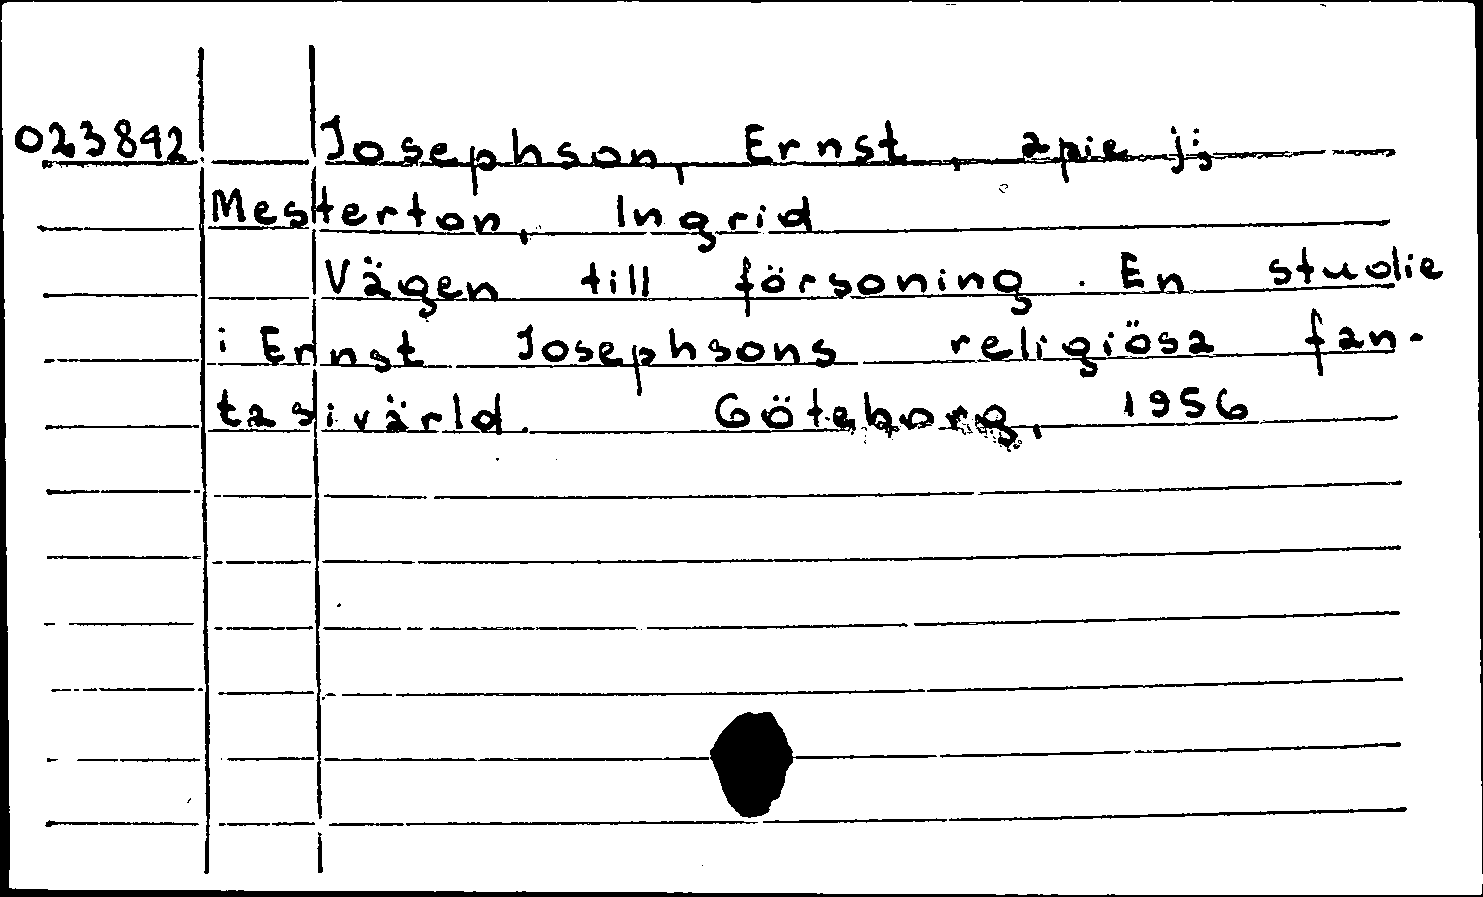 023892 Josephson, Ernst, apie jį
Mesterton, Ingrid
Vägen till försoning. En studie
i Ernst Josephsons religiösa fan-
tasivärld. Göteborg, 1956